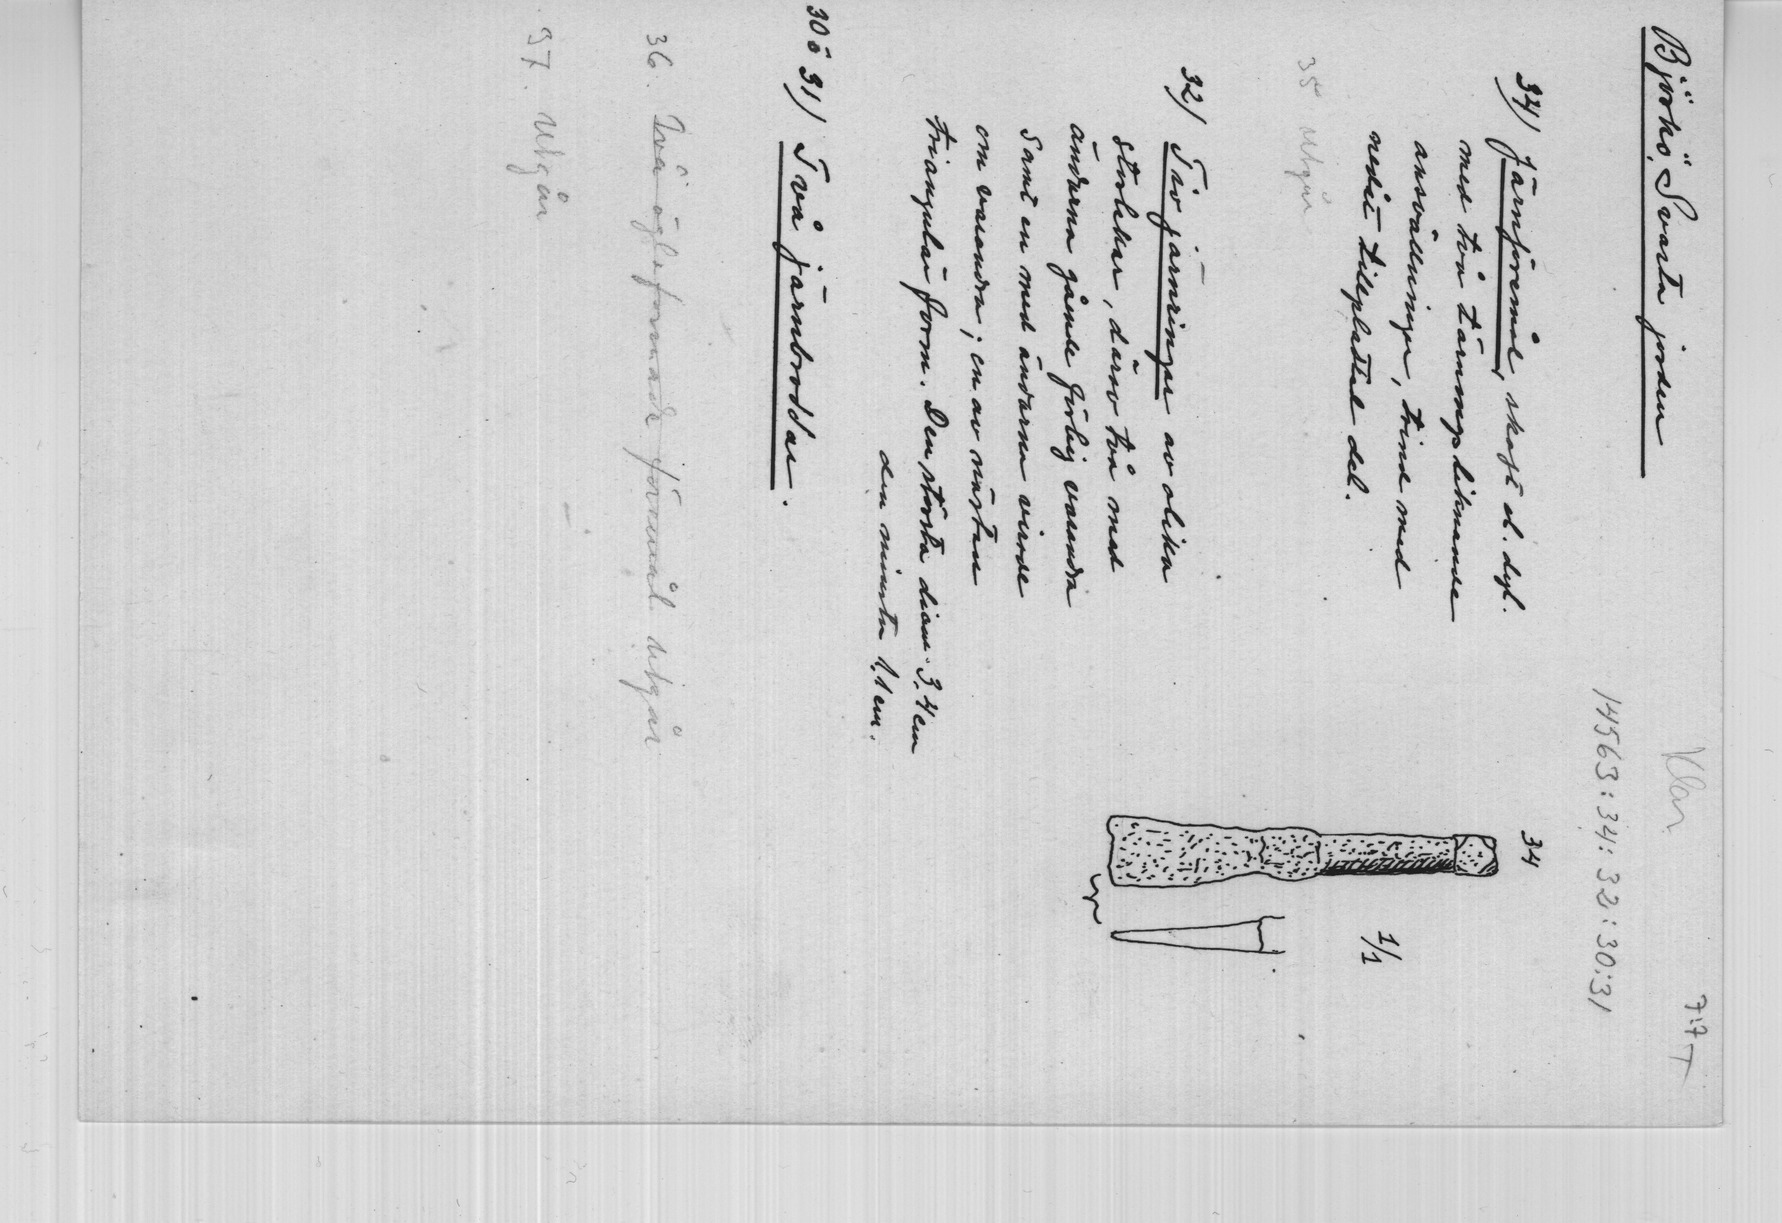 Björkö, Svarta jorden
Klar
7:7 T
14563:34: 32: 30:31
34/ Järnföremål, skaft el. dyl.
med två tärningsliknande
ansvällningar, trind med
nedåt tillplattad del.
34
1/1
35 utgår
32/ Tio järnringar av olika
storlekar, därav två med
ändarna gående förbi varandra
samt en med ändarna virade
om varandra; en av nästan
triangulär form. Den största diam. 3,4 cm
den minsta 1,1 cm.
30 o 31/ Två järnbroddar.
36. Två ögleformade föremål utgår
37. utgår